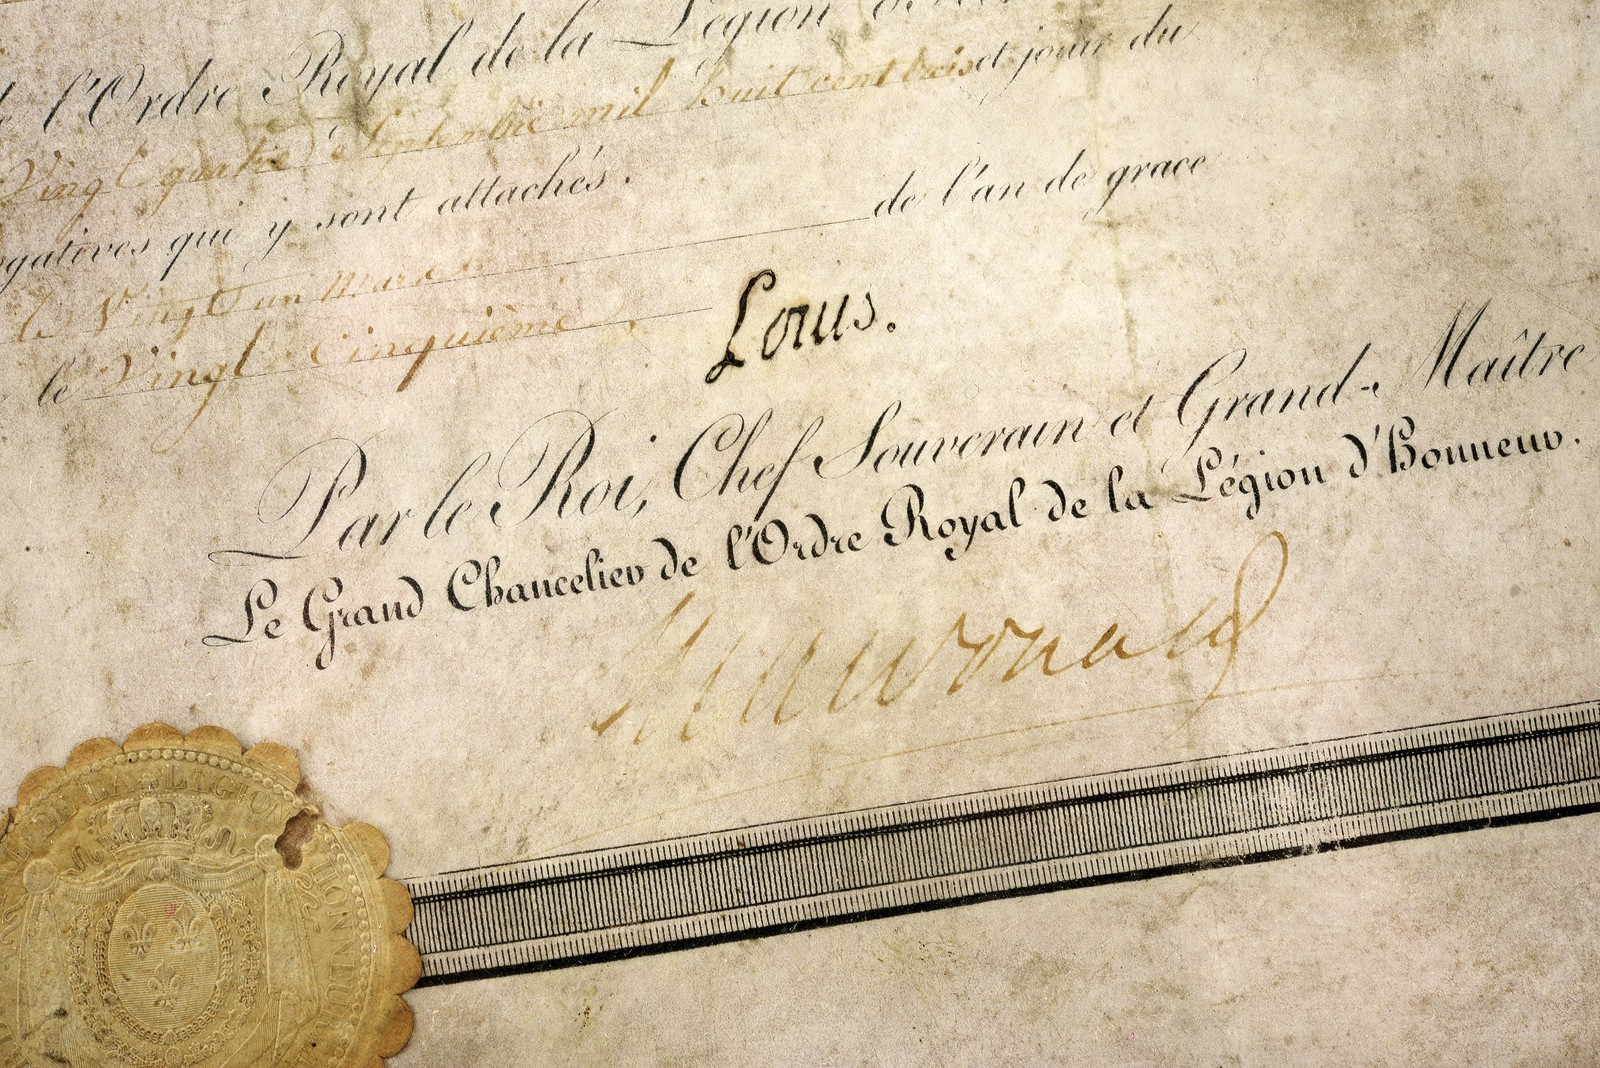 l'Ordre Royal de la Légion
Vingt quatre Septembre mil huit cent trois et jouir du
gatives qui y sont attachés.
de l'an de grace
le Vingt un Mars
le Vingt Cinquième
Louis.
Par le Roi, Chef Souverain et Grand-Maître
Le Grand Chancelier de l'Ordre Royal de la Légion d'Honneur.
Macdonald
DE LA LEGION D'HONNEUR